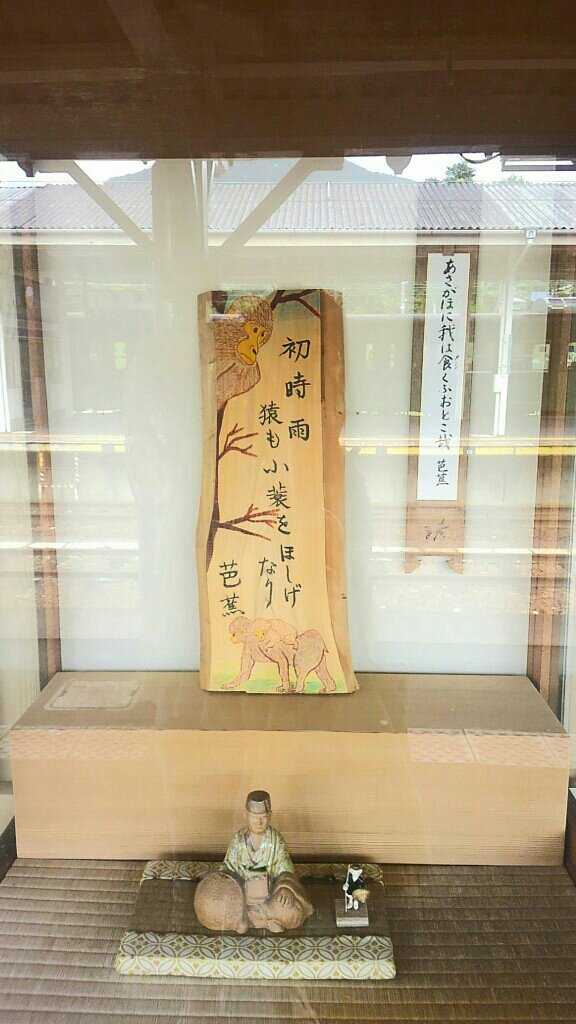 あさがほに我は食くふおとこ哉 芭蕉
初時雨
猿も小蓑をほしげ
なり
芭蕉